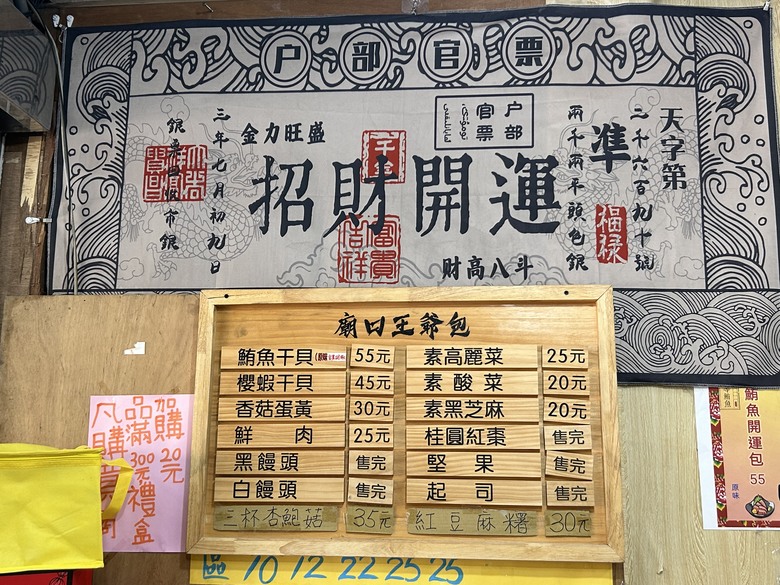 户部官票
天字第
二千六百九十號
準
兩千兩平頭色銀
福祿
户部
官票
招財開運
千金
富貴
吉祥
財高八斗
金力旺盛
三年七月初九日
廟口王爺包
鮪魚干貝 55元
櫻蝦干貝 45元
香菇蛋黃 30元
鮮肉 25元
黑饅頭 售完
白饅頭 售完
三杯杏鮑菇 35元
素高麗菜 25元
素酸菜 20元
素黑芝麻 20元
桂圓紅棗 售完
堅果 售完
起司 售完
紅豆麻糬 30元
加購20元
品滿300元禮盒
凡購買
鮪魚開運包 55
原味
區 10 12 22 25 25